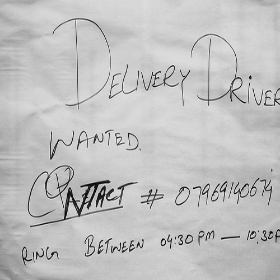 DELIVERY DRIVER
WANTED.
CONTACT # 07969140674
RING BETWEEN 04:30 PM — 10:30P